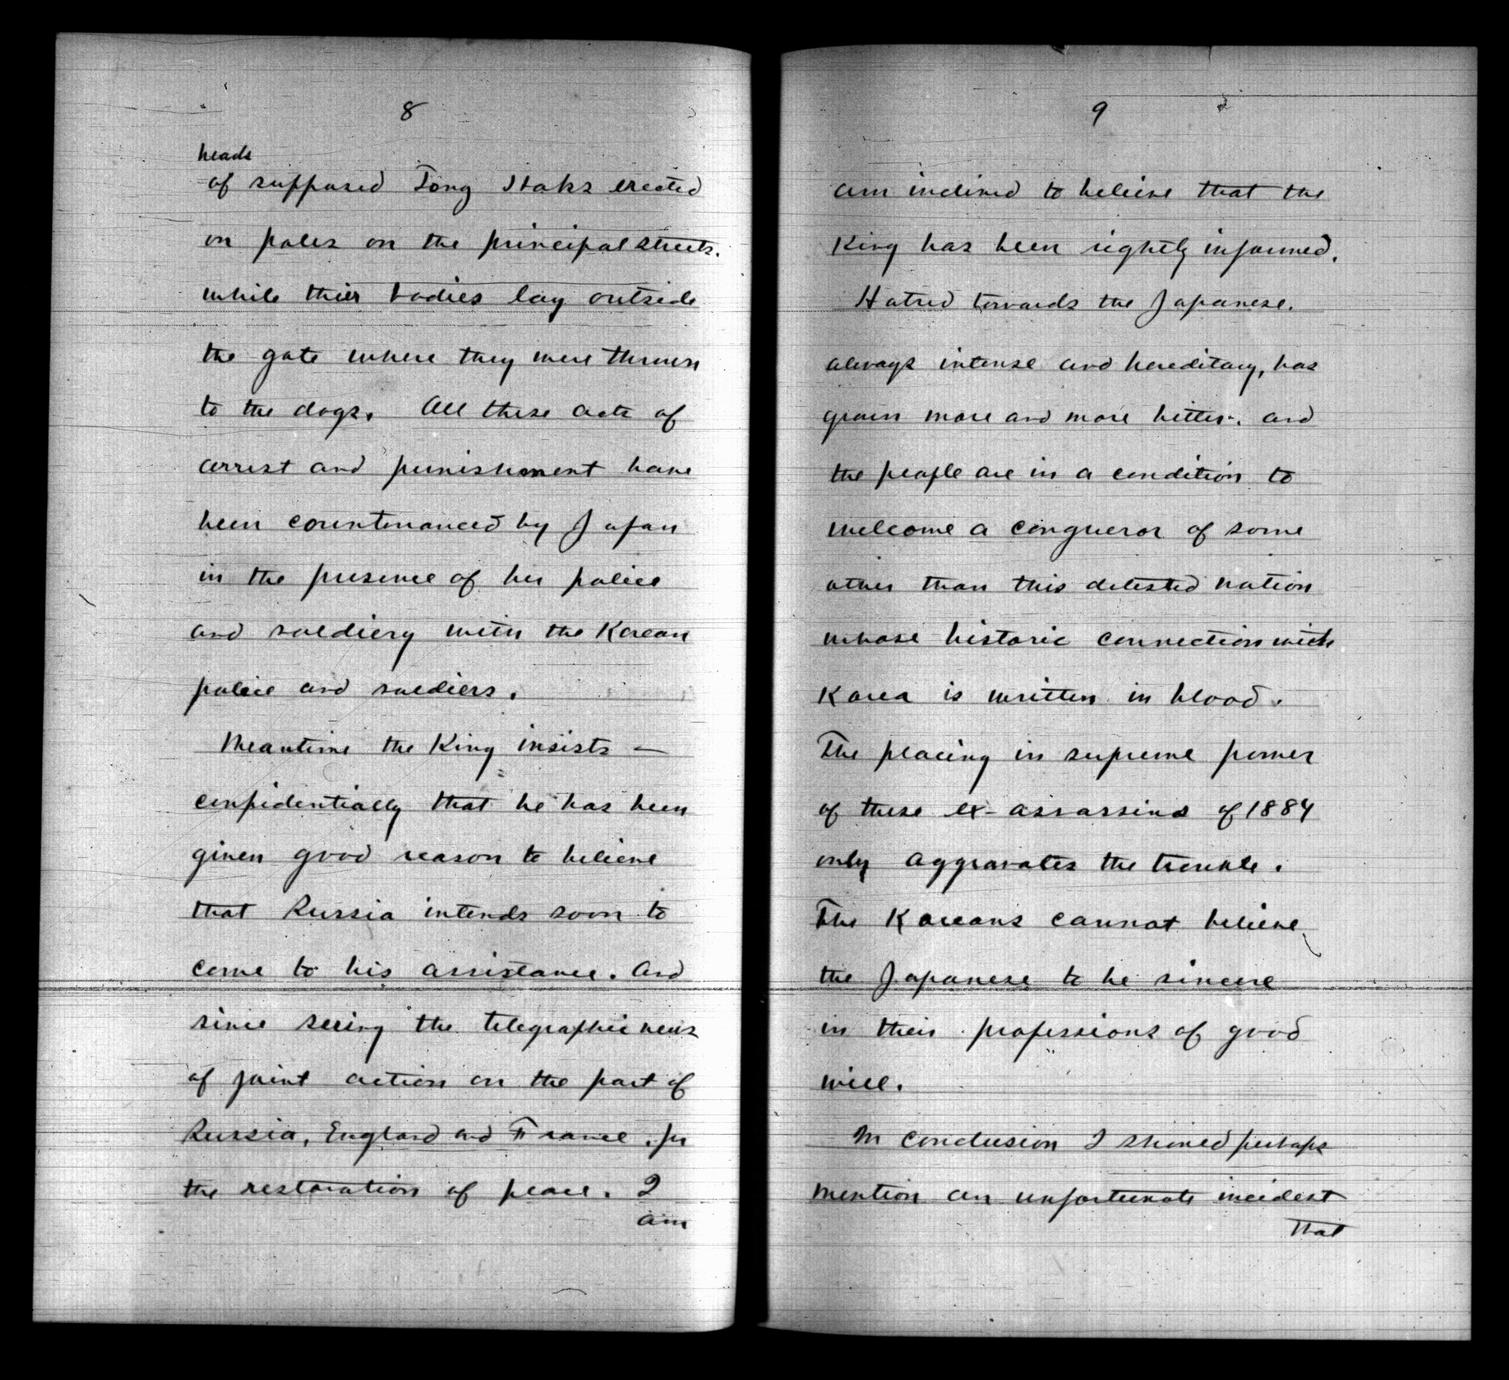 8
heads
of supposed Tong Haks erected
on poles on the principal streets.
while their bodies lay outside
the gate where they were thrown
to the dogs. All these acts of
arrest and punishment have
been countenanced by Japan
in the presence of her police
and soldiery with the Korean
police and soldiers.
Meantime the King insists —
confidentially that he has been
given good reason to believe
that Russia intends soon to
come to his assistance. And
since seeing the telegraphic news
of joint action on the part of
Russia, England and France. for
the restoration of peace. I
am
9
am inclined to believe that the
King has been rightly informed.
Hatred towards the Japanese.
always intense and hereditary, has
grown more and more bitter. and
the people are in a condition to
welcome a conqueror of some
other than this detested nation
whose historic connection with
Korea is written in blood.
The placing in supreme power
of these ex-assassins of 1884
only aggravates the trouble.
The Koreans cannot believe
the Japanese to be sincere
in their professions of good
will.
In conclusion I should perhaps
mention an unfortunate incident
that